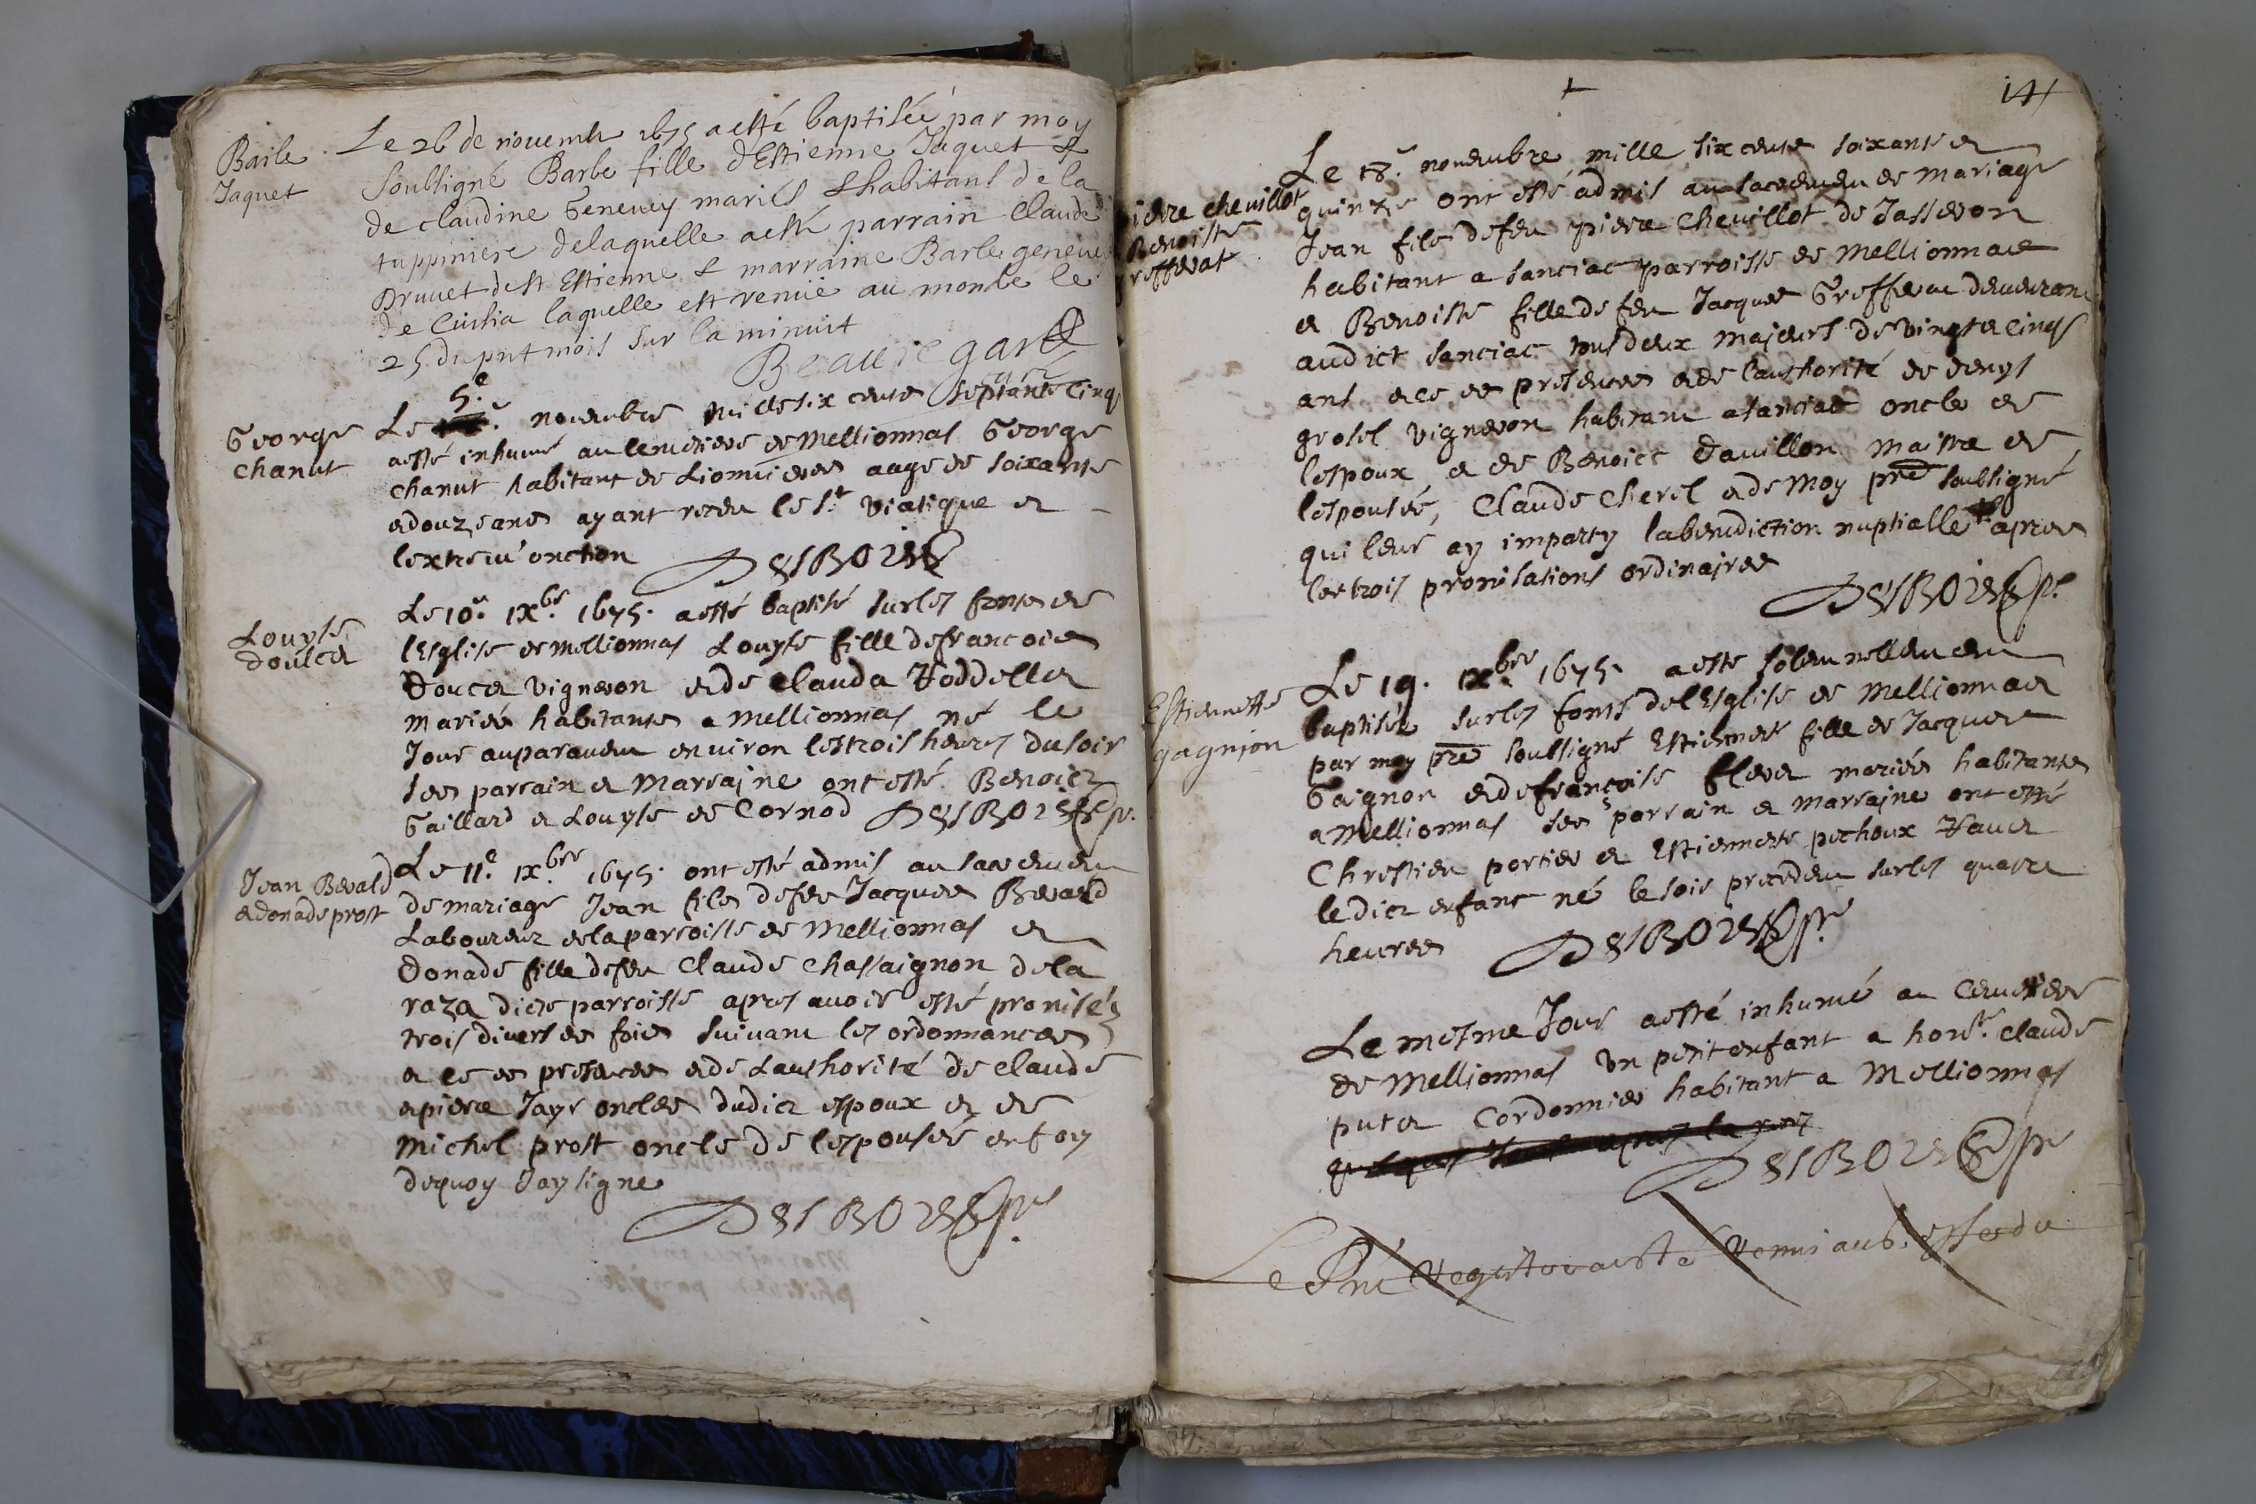 Barbe
Jaquet
Le 26 de novemb 1675 a esté baptisée par moy
soubsigné Barbe fille d'Estienne Jaquet &
de claudine Genevey mariés & habitans de la
tuppiniere de laquelle a esté parrain Claude
Druuet de St Estienne & marraine Barbe genevey
de Cuisia laquelle est venue au monde le
25 du pnt mois sur la minuit
Beauregard
George
chanut
Le 5.e novembre mille six cents septante cinq
a esté inhumé au cemetiere de Mellionnas George
chanut habitant de aage de soixante
et douze ans ayant receu le St. viatique et
lextrem' onction
DESBORDES
Louyse
doulcet
Le 10.e IXbre. 1675. a esté baptisé sur les fonts de
l'Esglise de mellionnas Louyse fille de francois
Doucet vigneron et de Clauda Voddellet
mariés habitants a mellionnas né le
Jour auparavent environ les trois heures du soir
Ses parrain et Marraine ont esté Benoict
Gaillard et Louyse de Cornod DESBORDES pr.
Jean Berard
et donade prost
Le 11.e IX.bre 1675. ont esté admis au sacrement
de mariage Jean fils de feu Jacques Berard
Laboureur de la parroisse de Mellionnas et
Donade fille de feu Claude Chassaignon de la
raza dicte parroisse apres avoir esté pronisés
trois diverses fois suivant les ordonnances
et ce es presences et de L'authorité de Claude
et pierre Jayr oncles dudict espoux et de
Michel prost oncle de lespousée en foy
dequoy Jay signe
DESBORDES pr
14
pierre chevillot
Benoiste
Greffevat
Le 18.e novembre mille six cents soixante et
quinze ont esté admis au sacrement de mariage
Jean fils de feu pierre Chevillot de Jasseron
habitant a sanciac parroisse de Mellionnas
et Benoiste fille de feu Jacques Greffevat demeurant
audict sanciac tous deux majeurs de vingt et cinq
ans et ce es presences et de l'authorité de denys
grosel vigneron habitant a sanciac oncle de
lespoux et de Benoict Davillon maistre de
lespousée, Claude Cherel et de Moy pre soubsigné
qui leur ay imparty la benediction nuptialle apres
les trois pronisations ordinaires
DESBORDES pr
Estiennette
gagnion
Le 19. IX.bre 1675. a esté solemnellement
baptisée sur les fonts de l'Esglise de Mellionnas
par moy pre soubsigné Estiennette fille de Jacques
Gaignon et de françoise mariés habitants
a Mellionnas Ses parrain et marraine ont esté
Chrestien portier et Estiennette pochoux
ledict enfant né le soir precedent sur les quatre
heures DESBORDES pr
Le mesme Jour a esté inhumé au Cemetiere
de Mellionnas un petit enfant a honste. Claude
putet Cordonnier habitant a Mellionnas
DESBORDES pr
Le Pnt registre a esté remis au